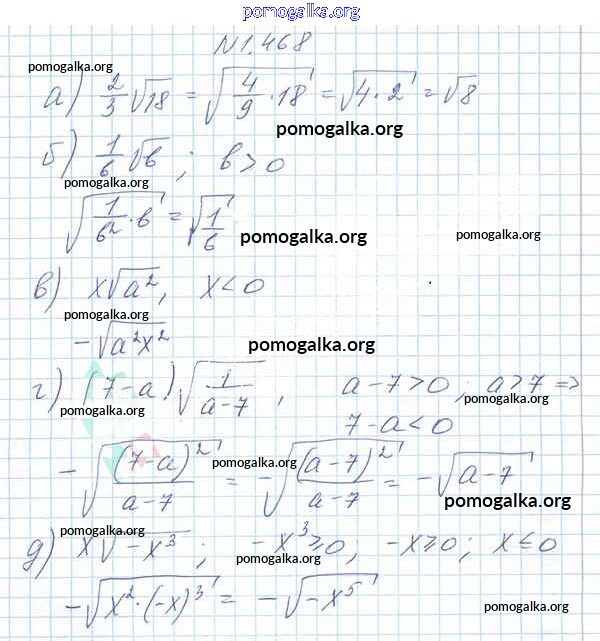 pomogalka.org
N1.468
pomogalka.org
а) 2/3 √18 = √(4/9 · 18) = √(4 · 2) = √8
pomogalka.org
pomogalka.org
б) 1/в √в ; в > 0
pomogalka.org
√(1/в² · в) = √(1/в)
pomogalka.org
pomogalka.org
в) x√a², x < 0
pomogalka.org
−√(a²x²)
pomogalka.org
г) (7−a)√(1/(a−7)), a−7>0; a>7 =>
pomogalka.org
pomogalka.org
7−a<0
−√((7−a)²/(a−7)) = −√((a−7)²/(a−7)) = −√(a−7)
pomogalka.org
pomogalka.org
pomogalka.org
д) x√(−x³); −x³≥0, −x≥0; x≤0
pomogalka.org
−√(x²·(−x)³) = −√(−x⁵)
pomogalka.org